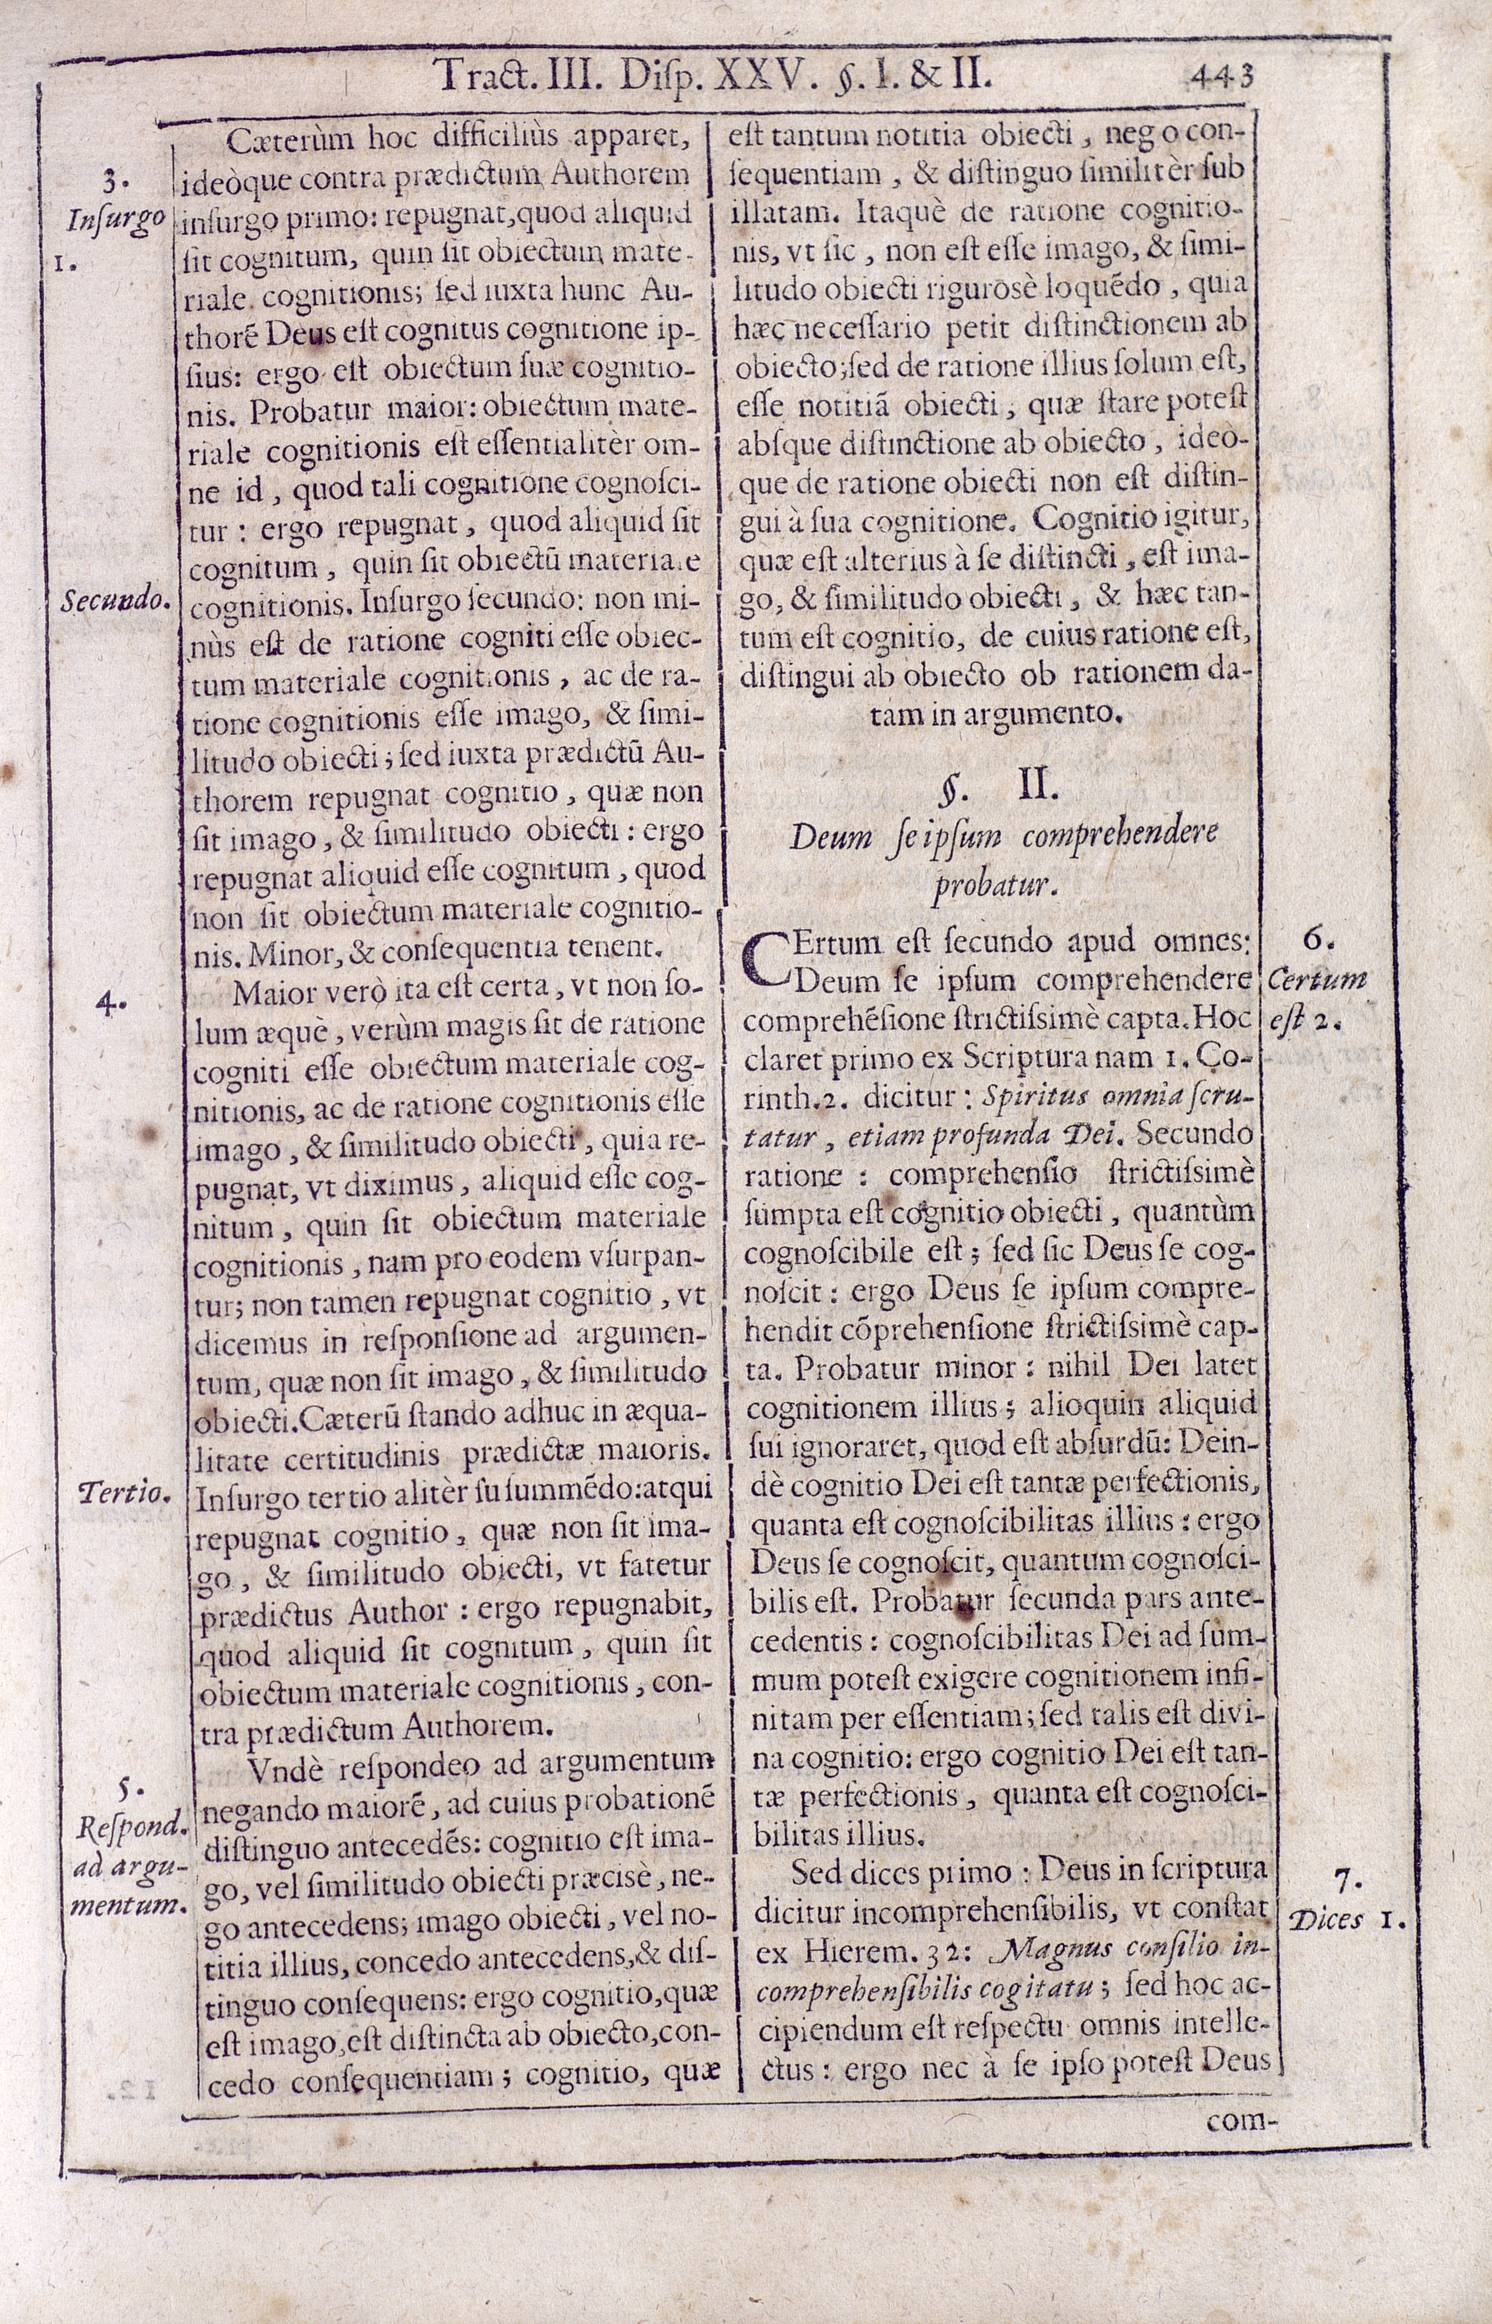 Tract. III. Disp. XXV. §. I. & II.
443
Cæterùm hoc difficiliùs apparet,
3.
ideòque contra prædictum Authorem
Insurgo
1.
insurgo primo: repugnat, quod aliquid
sit cognitum, quin sit obiectum mate-
riale cognitionis; sed iuxta hunc Au-
thorẽ Deus est cognitus cognitione ip-
sius: ergo est obiectum suæ cognitio-
nis. Probatur maior: obiectum mate-
riale cognitionis est essentialitèr om-
ne id, quod tali cognitione cognosci-
tur: ergo repugnat, quod aliquid sit
cognitum, quin sit obiectũ materiale
Secundo.
cognitionis. Insurgo secundo: non mi-
nùs est de ratione cogniti esse obiec-
tum materiale cognitionis, ac de ra-
tione cognitionis esse imago, & simi-
litudo obiecti; sed iuxta prædictũ Au-
thorem repugnat cognitio, quæ non
sit imago, & similitudo obiecti: ergo
repugnat aliquid esse cognitum, quod
non sit obiectum materiale cognitio-
nis. Minor, & consequentia tenent.
4.
Maior verò ita est certa, vt non so-
lum æquè, verùm magis sit de ratione
cogniti esse obiectum materiale cog-
nitionis, ac de ratione cognitionis esse
imago, & similitudo obiecti, quia re-
pugnat, vt diximus, aliquid esse cog-
nitum, quin sit obiectum materiale
cognitionis, nam pro eodem vsurpan-
tur; non tamen repugnat cognitio, vt
dicemus in responsione ad argumen-
tum, quæ non sit imago, & similitudo
obiecti. Cæterũ stando adhuc in æqua-
litate certitudinis prædictæ maioris.
Tertio.
Insurgo tertio alitèr susummẽdo: atqui
repugnat cognitio, quæ non sit ima-
go, & similitudo obiecti, vt fatetur
prædictus Author: ergo repugnabit,
quod aliquid sit cognitum, quin sit
obiectum materiale cognitionis, con-
tra prædictum Authorem.
5.
Respond.
ad argu-
mentum.
Vndè respondeo ad argumentum
negando maiorẽ, ad cuius probationẽ
distinguo antecedẽs: cognitio est ima-
go, vel similitudo obiecti præcisè, ne-
go antecedens; imago obiecti, vel no-
titia illius, concedo antecedens, & dis-
tinguo consequens: ergo cognitio, quæ
est imago, est distincta ab obiecto, con-
cedo consequentiam; cognitio, quæ
est tantum notitia obiecti, nego con-
sequentiam, & distinguo similitèr sub
illatam. Itaquè de ratione cognitio-
nis, vt sic, non est esse imago, & simi-
litudo obiecti rigurosè loquẽdo, quia
hæc necessario petit distinctionem ab
obiecto; sed de ratione illius solum est,
esse notitiã obiecti, quæ stare potest
absque distinctione ab obiecto, ideò-
que de ratione obiecti non est distin-
gui à sua cognitione. Cognitio igitur,
quæ est alterius à se distincti, est ima-
go, & similitudo obiecti, & hæc tan-
tum est cognitio, de cuius ratione est,
distingui ab obiecto ob rationem da-
tam in argumento.
§. II.
Deum se ipsum comprehendere
probatur.
CErtum est secundo apud omnes:
Deum se ipsum comprehendere
6.
Certum
est 2.
comprehẽsione strictissimè capta. Hoc
claret primo ex Scriptura nam 1. Co-
rinth. 2. dicitur: Spiritus omnia scru-
tatur, etiam profunda Dei. Secundo
ratione: comprehensio strictissimè
sumpta est cognitio obiecti, quantùm
cognoscibile est; sed sic Deus se cog-
noscit: ergo Deus se ipsum compre-
hendit cõprehensione strictissimè cap-
ta. Probatur minor: nihil Dei latet
cognitionem illius; alioquin aliquid
sui ignoraret, quod est absurdũ: Dein-
dè cognitio Dei est tantæ perfectionis,
quanta est cognoscibilitas illius: ergo
Deus se cognoscit, quantum cognosci-
bilis est. Probatur secunda pars ante-
cedentis: cognoscibilitas Dei ad sum-
mum potest exigere cognitionem infi-
nitam per essentiam; sed talis est divi-
na cognitio: ergo cognitio Dei est tan-
tæ perfectionis, quanta est cognosci-
bilitas illius.
Sed dices primo: Deus in scriptura
7.
Dices 1.
dicitur incomprehensibilis, vt constat
ex Hierem. 32: Magnus consilio in-
comprehensibilis cogitatu; sed hoc ac-
cipiendum est respectu omnis intelle-
ctus: ergo nec à se ipso potest Deus
com-